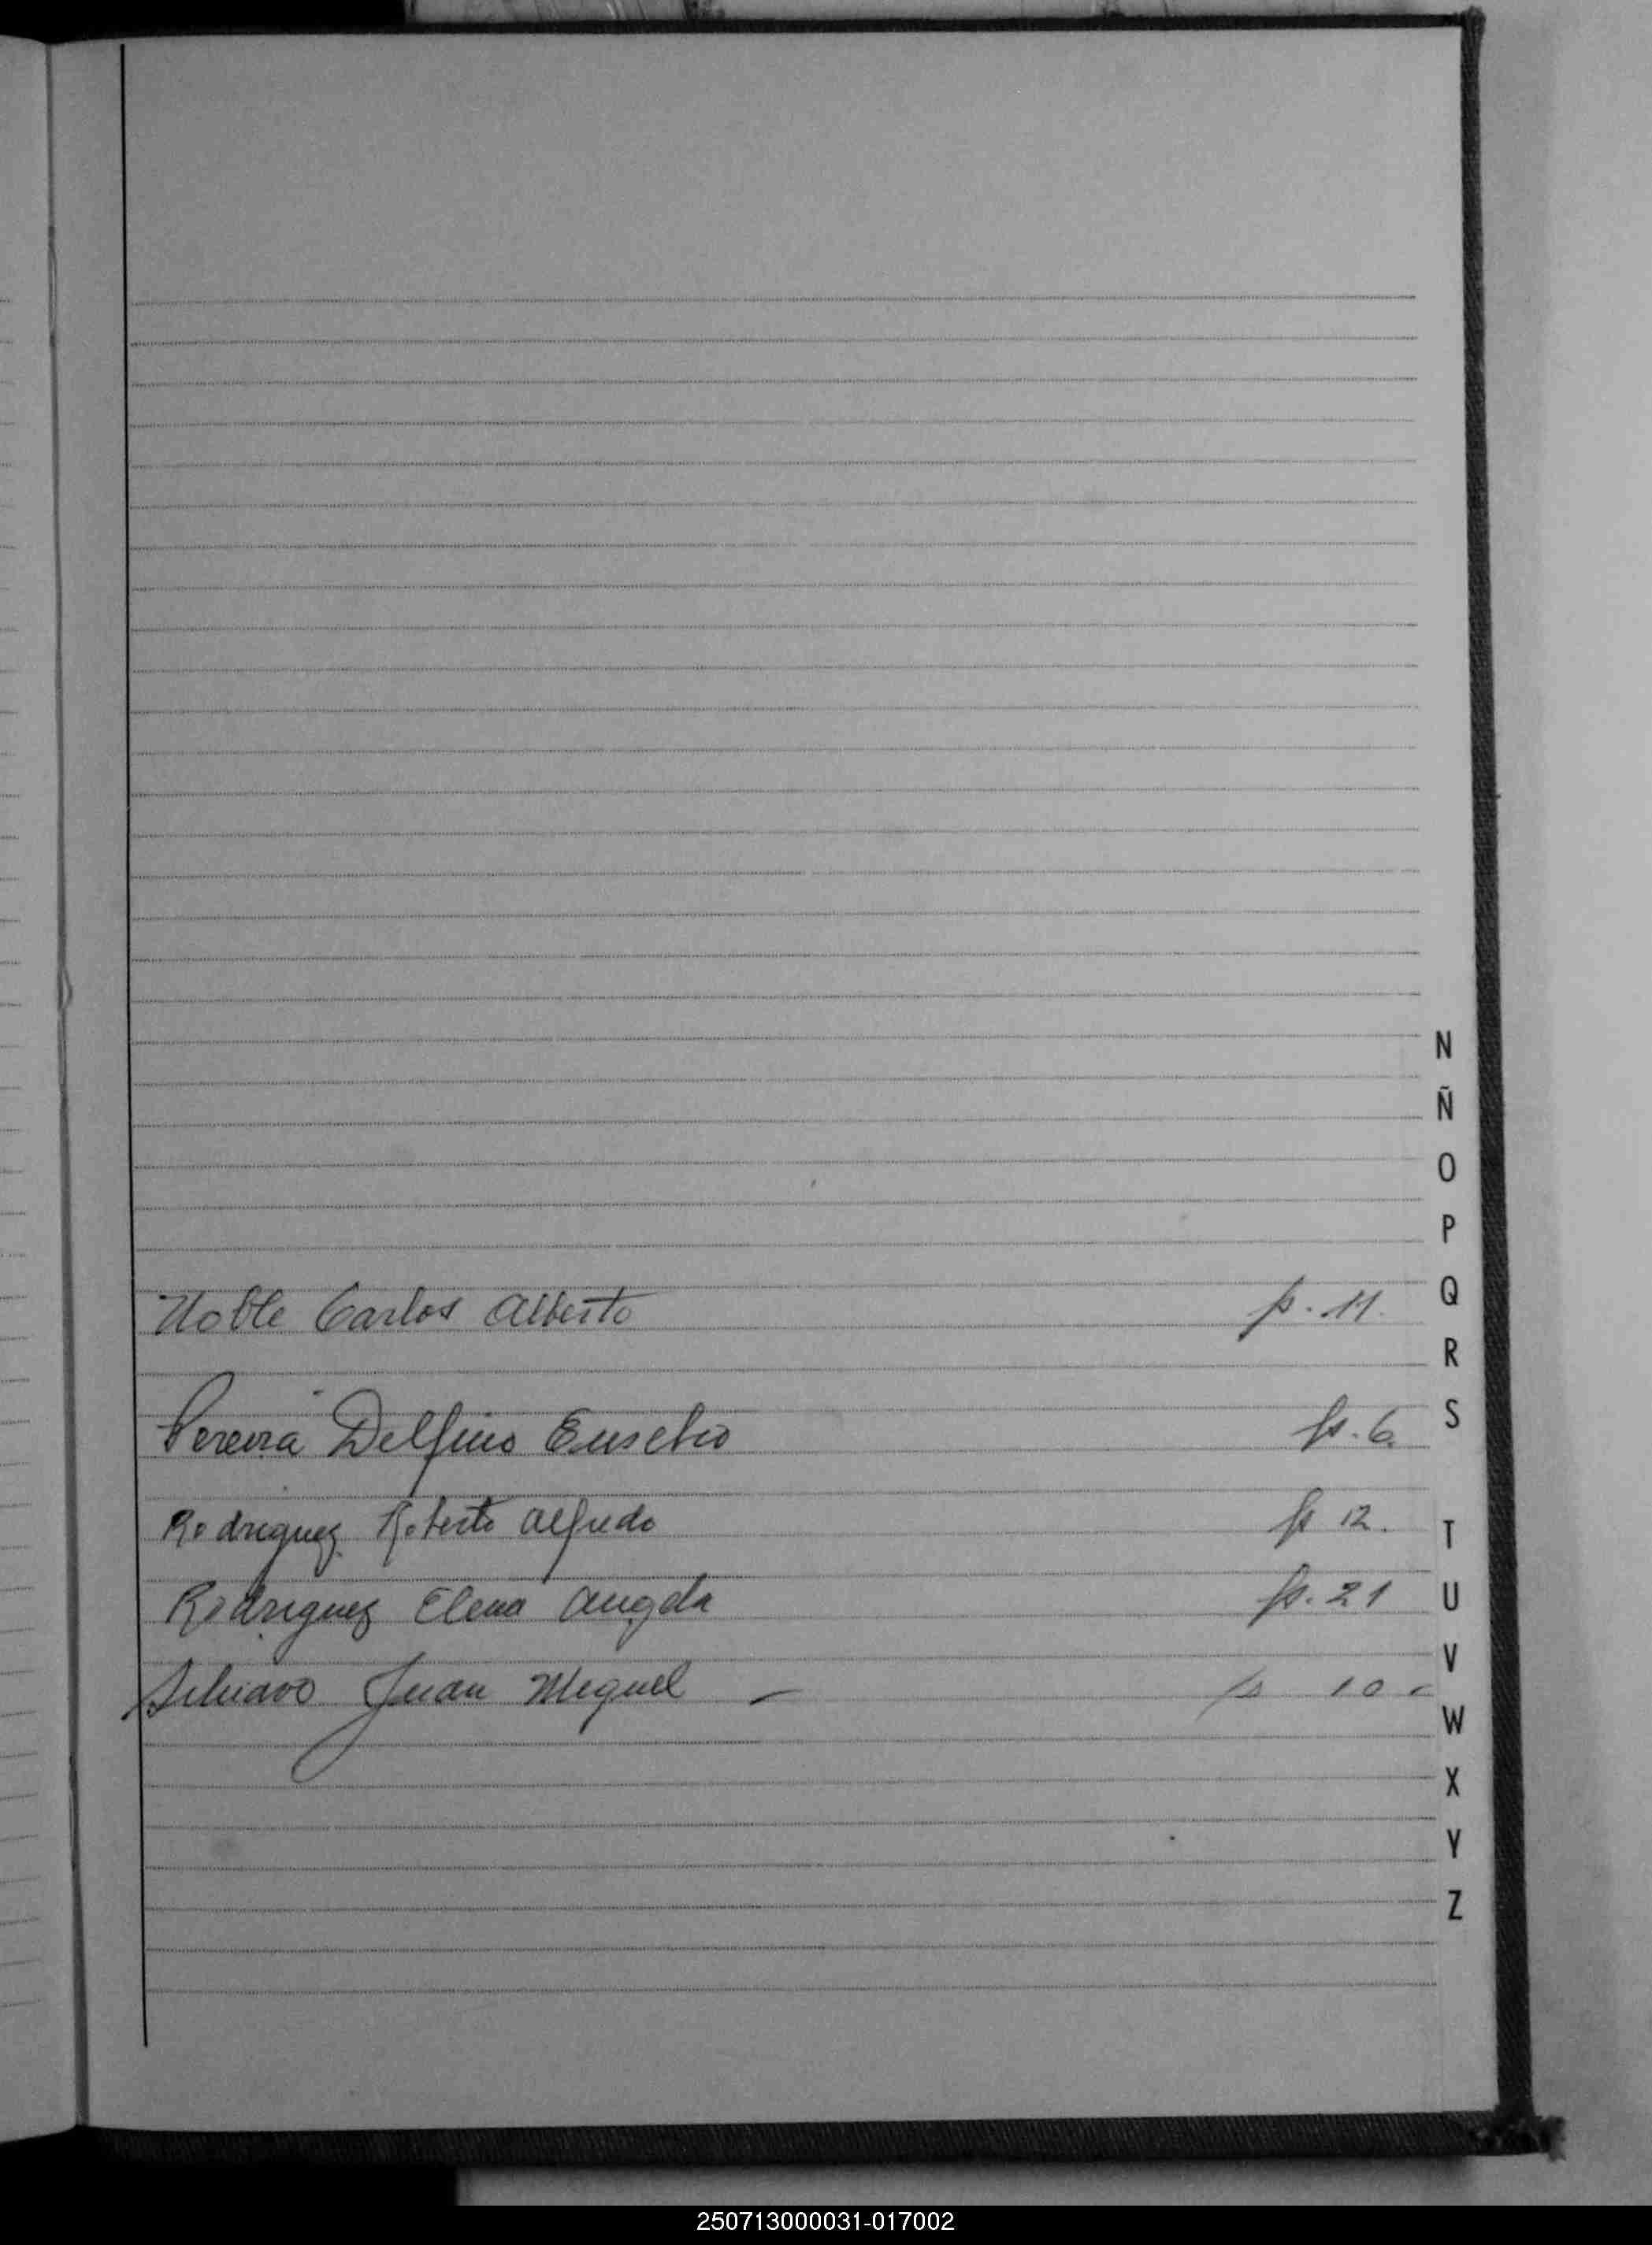 Noble Carlos Alberto p. 11.
Pereira Delfino Eusebio p. 6.
Rodriguez Roberto Alfredo p 12.
Rodriguez Elena Angela p. 21
Schiavo Juan Miguel – p 10 -
N
Ñ
O
P
Q
R
S
T
U
V
W
X
Y
Z
250713000031-017002